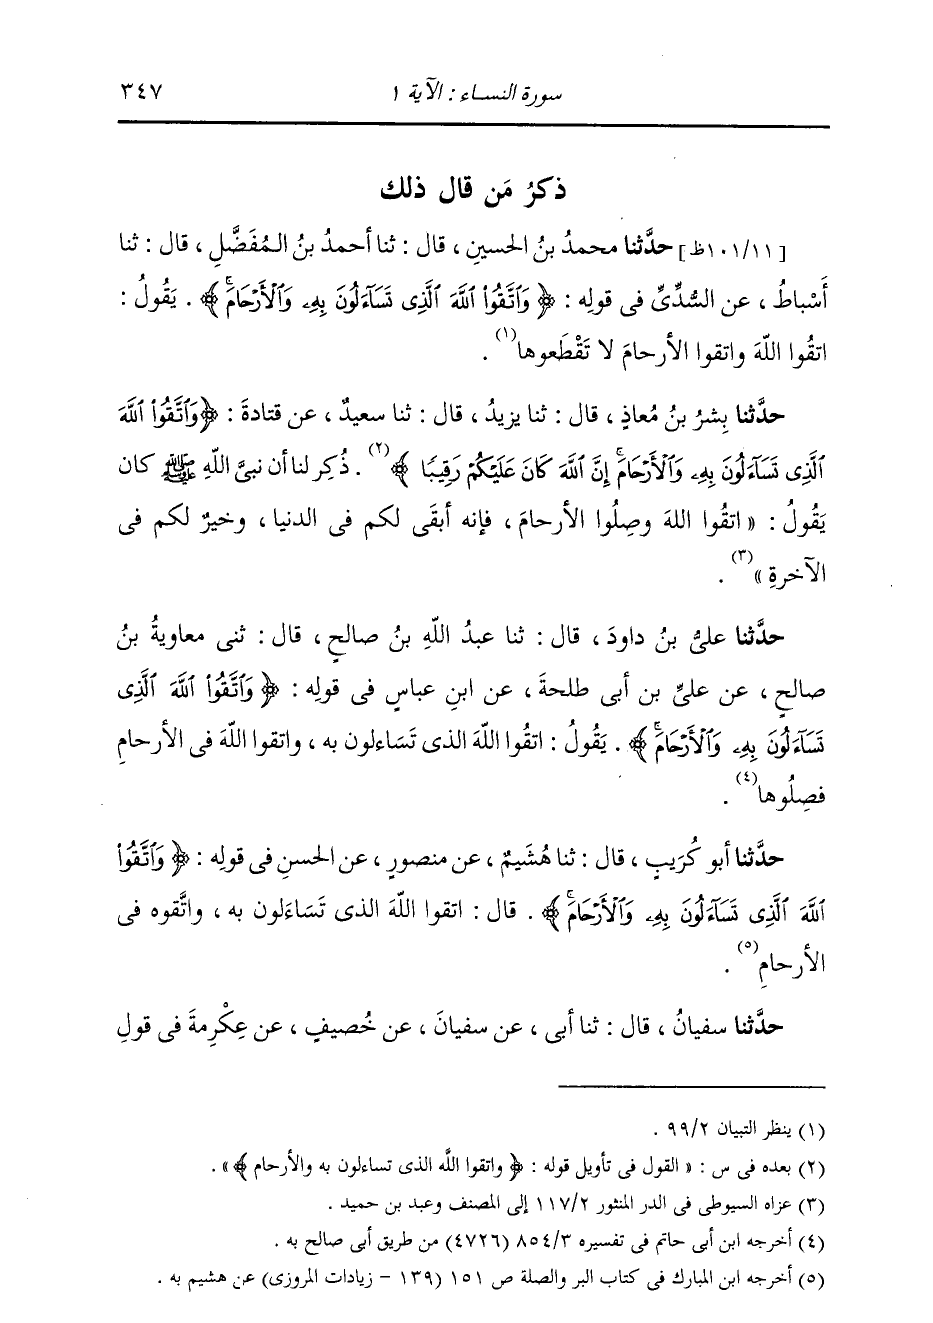 سورة النساء : الآية ١
٣٤٧
ذكرُ مَن قال ذلك
[١٠١/١١ظ] حدَّثنا محمدُ بنُ الحسينِ ، قال : ثنا أحمدُ بنُ المُفَضَّلِ ، قال : ثنا
أَسْباطُ ، عن السُّدِّىِّ فى قولِه : ﴿ وَٱتَّقُوا۟ ٱللَّهَ ٱلَّذِى تَسَآءَلُونَ بِهِۦ وَٱلْأَرْحَامَۚ ﴾ . يَقُولُ :
اتقُوا اللَّهَ واتقوا الأرحامَ لا تَقْطَعوها(١) .
حدَّثنا بِشرُ بنُ مُعاذٍ ، قال : ثنا يزيدُ ، قال : ثنا سعيدٌ ، عن قتادةَ : ﴿وَٱتَّقُوا۟ ٱللَّهَ
ٱلَّذِى تَسَآءَلُونَ بِهِۦ وَٱلْأَرْحَامَۚ إِنَّ ٱللَّهَ كَانَ عَلَيْكُمْ رَقِيبًا ﴾(٢) . ذُكِر لنا أن نبىَّ اللَّهِ ﷺ كان
يَقُولُ : « اتقُوا اللهَ وصِلُوا الأرحامَ ، فإنه أبقَى لكم فى الدنيا ، وخيرٌ لكم فى
الآخرةِ »(٣) .
حدَّثنا علىُّ بنُ داودَ ، قال : ثنا عبدُ اللَّهِ بنُ صالحٍ ، قال : ثنى معاويةُ بنُ
صالحٍ ، عن علىِّ بنِ أبى طلحةَ ، عن ابنِ عباسٍ فى قولِه : ﴿ وَٱتَّقُوا۟ ٱللَّهَ ٱلَّذِى
تَسَآءَلُونَ بِهِۦ وَٱلْأَرْحَامَۚ ﴾ . يَقُولُ : اتقُوا اللَّهَ الذى تَسَاءلون به ، واتقوا اللَّهَ فى الأرحامِ
فصِلُوها(٤) .
حدَّثنا أبو كُرَيبٍ ، قال : ثنا هُشَيمٌ ، عن منصورٍ ، عن الحسنِ فى قولِه : ﴿ وَٱتَّقُوا۟
ٱللَّهَ ٱلَّذِى تَسَآءَلُونَ بِهِۦ وَٱلْأَرْحَامَۚ ﴾ . قال : اتقوا اللَّهَ الذى تَسَاءَلون به ، واتَّقوه فى
الأرحامِ(٥) .
حدَّثنا سفيانُ ، قال : ثنا أبى ، عن سفيانَ ، عن خُصيفٍ ، عن عِكْرِمةَ فى قولِ
(١) ينظر التبيان ٩٩/٢ .
(٢) بعده فى س : « القول فى تأويل قوله : ﴿ واتقوا اللَّه الذى تساءلون به والأرحام ﴾ » .
(٣) عزاه السيوطى فى الدر المنثور ١١٧/٢ إلى المصنف وعبد بن حميد .
(٤) أخرجه ابن أبى حاتم فى تفسيره ٨٥٤/٣ (٤٧٢٦) من طريق أبى صالح به .
(٥) أخرجه ابن المبارك فى كتاب البر والصلة ص ١٥١ (١٣٩ - زيادات المروزى) عن هشيم به .